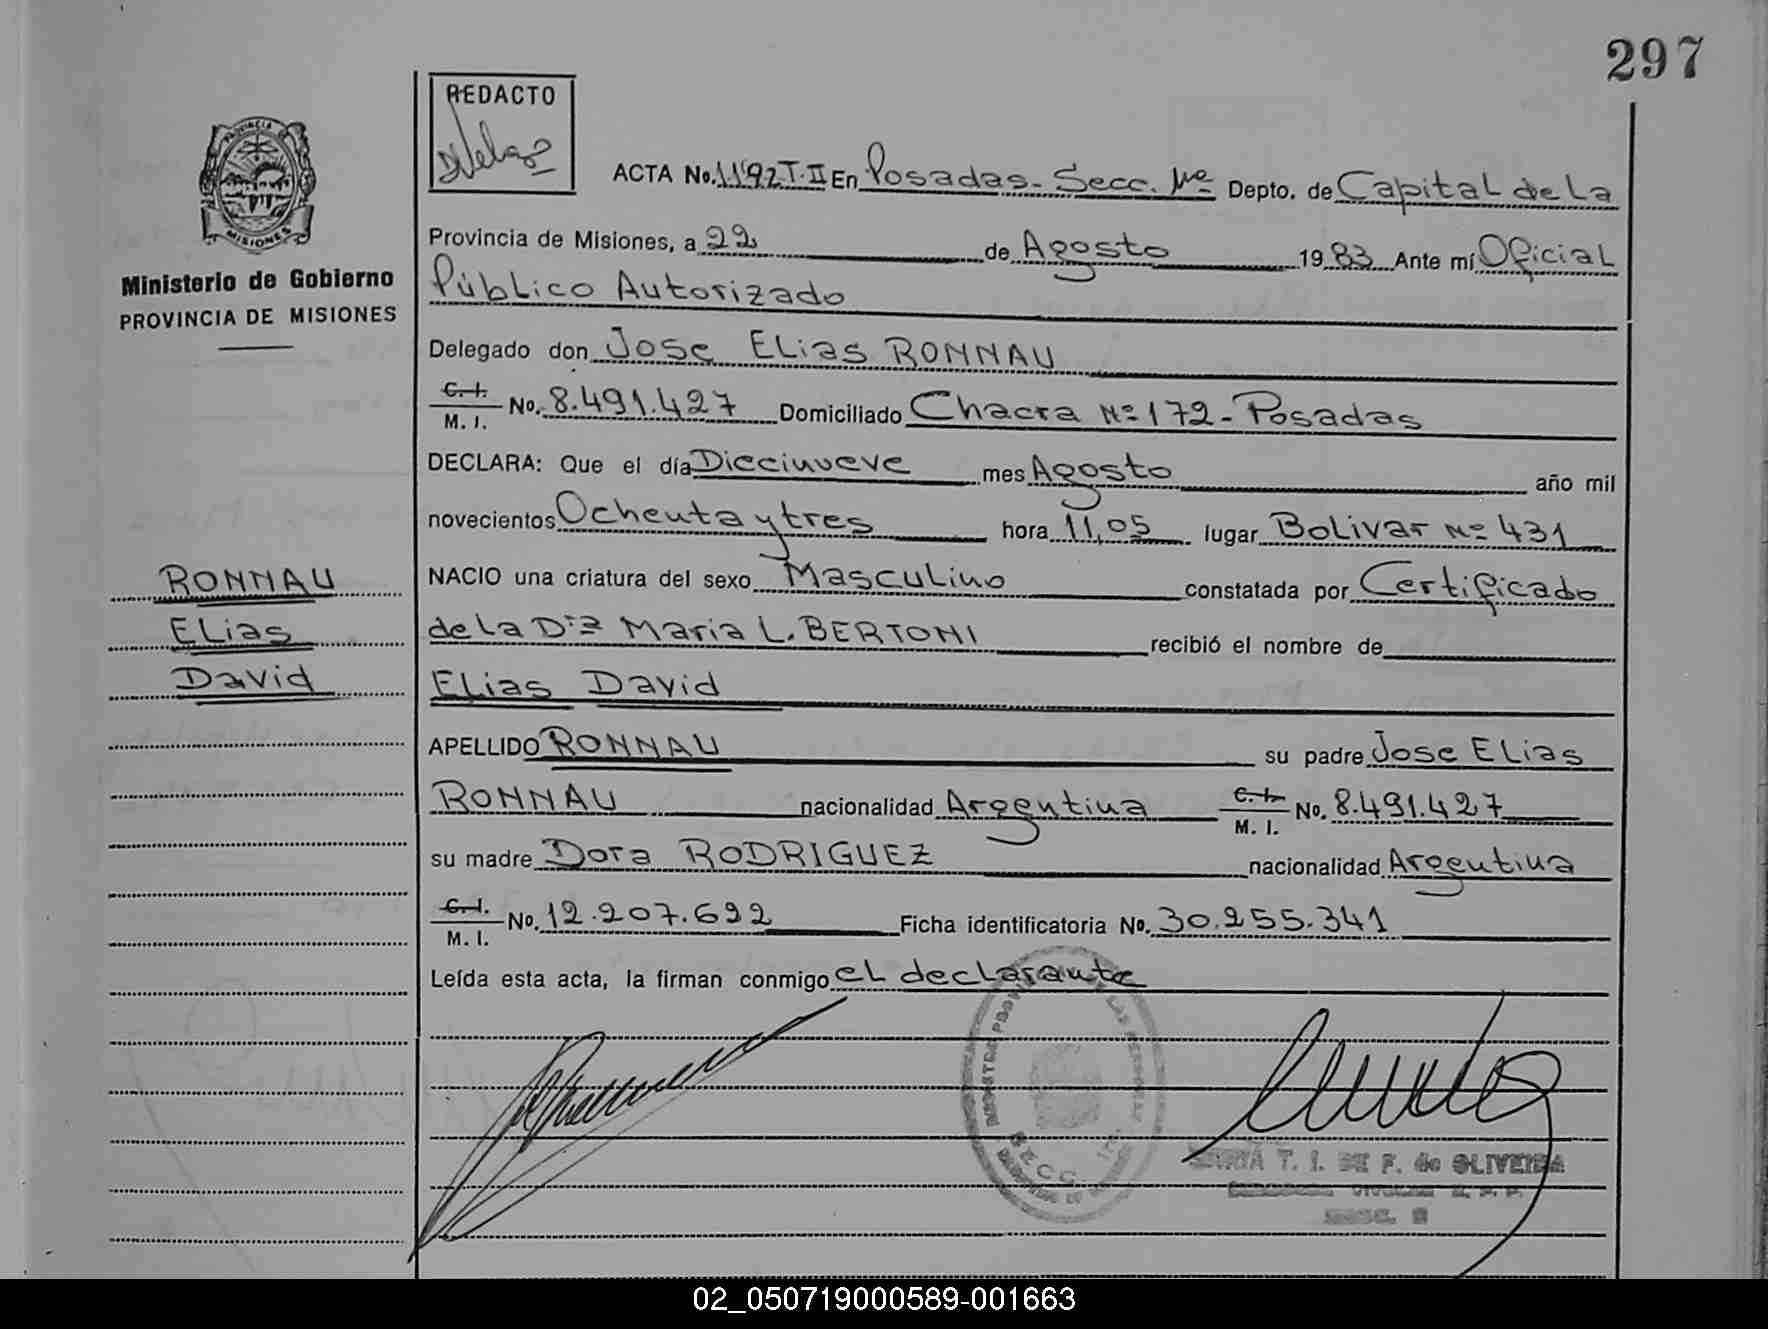 297
REDACTO
PROVINCIA DE
MISIONES
Ministerio de Gobierno
PROVINCIA DE MISIONES
ACTA No. 1192 T. II En Posadas - Secc. 1ra Depto. de Capital de la
Provincia de Misiones, a 22 de Agosto 1983 Ante mí Oficial
Público Autorizado
Delegado don Jose Elias RONNAU
C. I. / M. I. No. 8.491.427 Domiciliado Chacra Nº 172 - Posadas
DECLARA: Que el día Diecinueve mes Agosto año mil
novecientos Ochenta y tres hora 11,05 lugar Bolivar Nº 431
NACIO una criatura del sexo Masculino constatada por Certificado
de la Dra Maria L. BERTONI recibió el nombre de
Elias David
APELLIDO RONNAU su padre Jose Elias
RONNAU nacionalidad Argentina C. I. / M. I. No. 8.491.427
su madre Dora RODRIGUEZ nacionalidad Argentina
C. I. / M. I. No. 12.207.622 Ficha identificatoria No. 30.255.341
Leída esta acta, la firman conmigo el declarante
RONNAU
Elias
David
DE LAS PERSONAS
SECC. 1ra
T. I. DE F. de OLIVEIRA
02_050719000589-001663